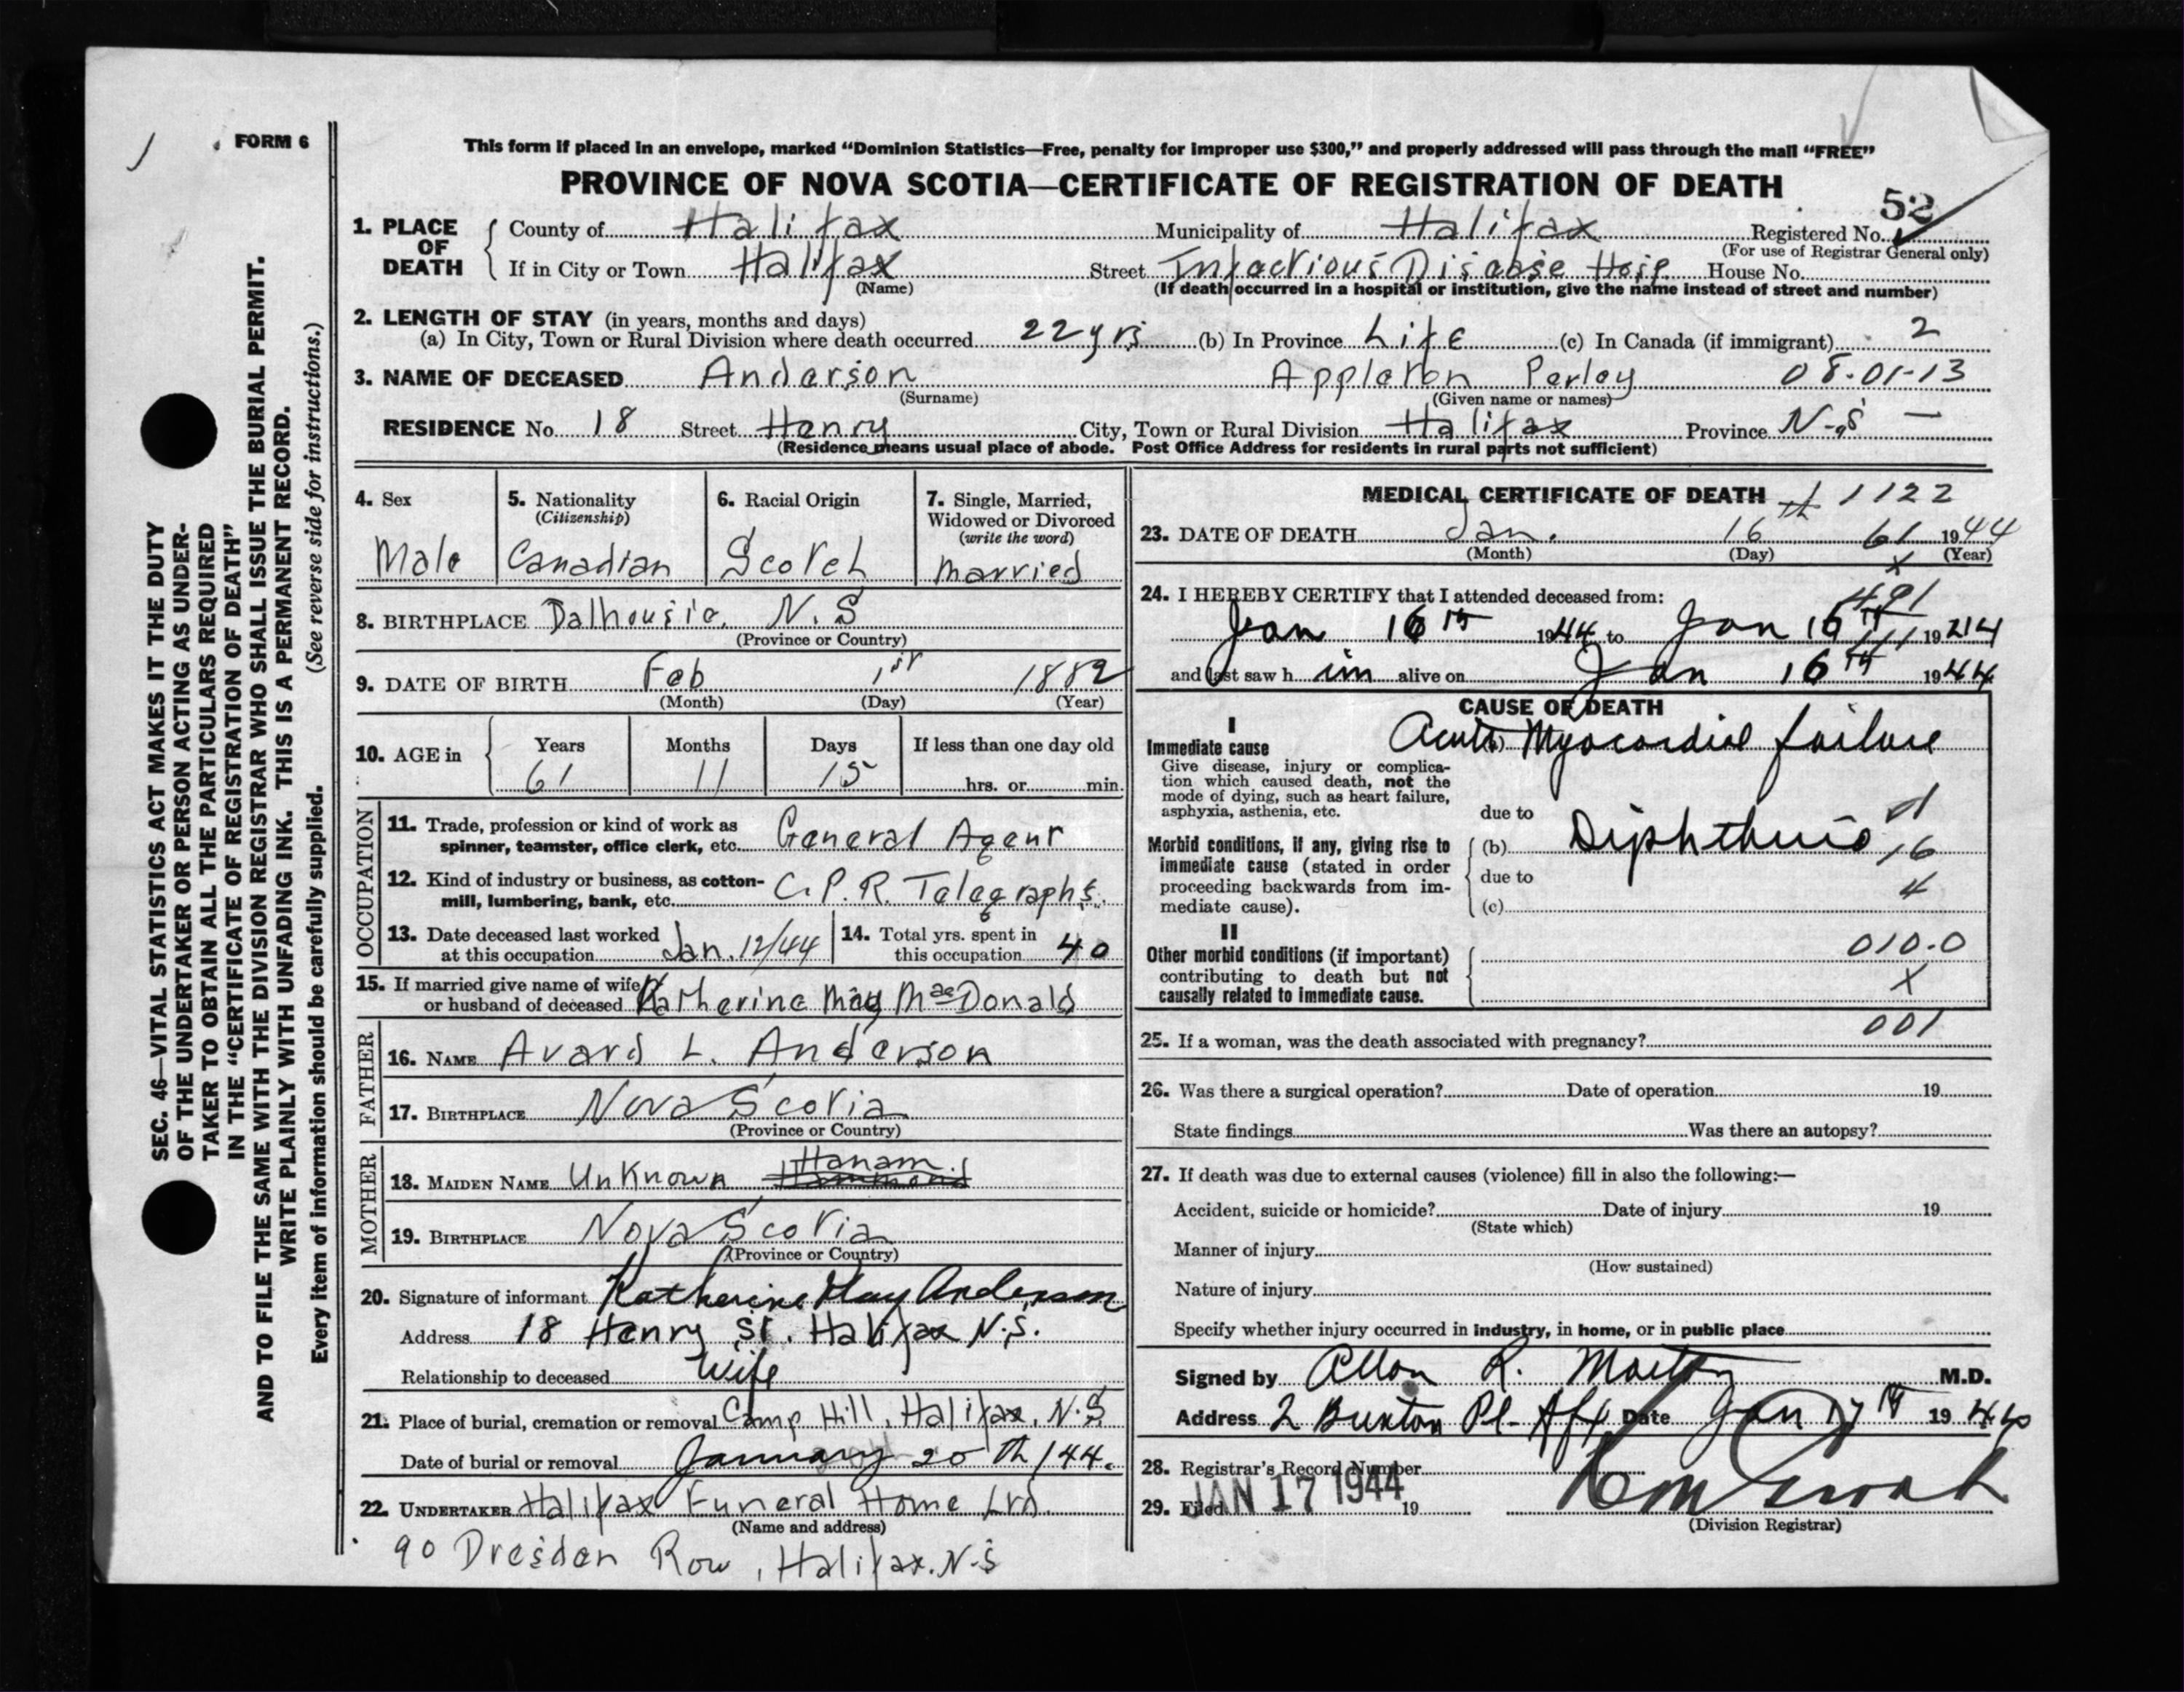 FORM 6
SEC. 46—VITAL STATISTICS ACT MAKES IT THE DUTY
OF THE UNDERTAKER OR PERSON ACTING AS UNDER-
TAKER TO OBTAIN ALL THE PARTICULARS REQUIRED
IN THE "CERTIFICATE OF REGISTRATION OF DEATH"
AND TO FILE THE SAME WITH THE DIVISION REGISTRAR WHO SHALL ISSUE THE BURIAL PERMIT.
WRITE PLAINLY WITH UNFADING INK. THIS IS A PERMANENT RECORD.
Every item of information should be carefully supplied. (See reverse side for instructions.)
This form if placed in an envelope, marked "Dominion Statistics—Free, penalty for improper use $300," and properly addressed will pass through the mail "FREE"
PROVINCE OF NOVA SCOTIA—CERTIFICATE OF REGISTRATION OF DEATH
52
1. PLACE OF DEATH County of Halifax Municipality of Halifax Registered No.
(For use of Registrar General only)
If in City or Town Halifax Street Infactious Disease Hosp House No.
(Name) (If death occurred in a hospital or institution, give the name instead of street and number)
2. LENGTH OF STAY (in years, months and days)
(a) In City, Town or Rural Division where death occurred 22 yrs (b) In Province Life (c) In Canada (if immigrant) 2
3. NAME OF DECEASED Anderson Appleton Perley 08-01-13
(Surname) (Given name or names)
RESIDENCE No. 18 Street Henry City, Town or Rural Division Halifax Province N.S —
(Residence means usual place of abode. Post Office Address for residents in rural parts not sufficient)
4. Sex Male
5. Nationality (Citizenship) Canadian
6. Racial Origin Scotch
7. Single, Married, Widowed or Divorced (write the word) Married
8. BIRTHPLACE Dalhousie, N.S
(Province or Country)
9. DATE OF BIRTH Feb 1st 1882
(Month) (Day) (Year)
10. AGE in Years 61 Months 11 Days 15 If less than one day old hrs. or min.
OCCUPATION
11. Trade, profession or kind of work as spinner, teamster, office clerk, etc. General Agent
12. Kind of industry or business, as cotton-mill, lumbering, bank, etc. C.P.R. Telegraphs.
13. Date deceased last worked at this occupation Jan. 12/44
14. Total yrs. spent in this occupation 40
15. If married give name of wife or husband of deceased Katherine May MacDonald
FATHER
16. NAME Avard L. Anderson
17. BIRTHPLACE Nova Scotia
(Province or Country)
MOTHER
18. MAIDEN NAME Unknown Hanam
19. BIRTHPLACE Nova Scotia
(Province or Country)
20. Signature of informant Katherine May Anderson
Address 18 Henry St. Halifax N.S.
Relationship to deceased Wife
21. Place of burial, cremation or removal Camp Hill, Halifax, N.S
Date of burial or removal January 20th/44.
22. UNDERTAKER Halifax Funeral Home Ltd.
(Name and address)
90 Dresden Row, Halifax. N.S
MEDICAL CERTIFICATE OF DEATH 1122
23. DATE OF DEATH Jan. 16th 61 1944
(Month) (Day) (Year)
x
24. I HEREBY CERTIFY that I attended deceased from: 491
Jan 16th 1944 to Jan 16th 1944
and last saw him alive on Jan 16th 1944
CAUSE OF DEATH
I
Immediate cause
Give disease, injury or complication which caused death, not the mode of dying, such as heart failure, asphyxia, asthenia, etc.
(a) Acute Myocardial failure
due to
Morbid conditions, if any, giving rise to immediate cause (stated in order proceeding backwards from immediate cause).
(b) Diphtheria
16
due to
4
(c)
II
Other morbid conditions (if important) contributing to death but not causally related to immediate cause.
010.0
X
001
25. If a woman, was the death associated with pregnancy?
26. Was there a surgical operation? Date of operation 19
State findings Was there an autopsy?
27. If death was due to external causes (violence) fill in also the following:—
Accident, suicide or homicide? Date of injury 19
(State which)
Manner of injury
(How sustained)
Nature of injury
Specify whether injury occurred in industry, in home, or in public place
Signed by Allan R. Morton M.D.
Address 2 Buxton Pl- Hfx Date Jan 17th 1944
28. Registrar's Record Number
29. Filed JAN 17 1944 19
(Division Registrar)